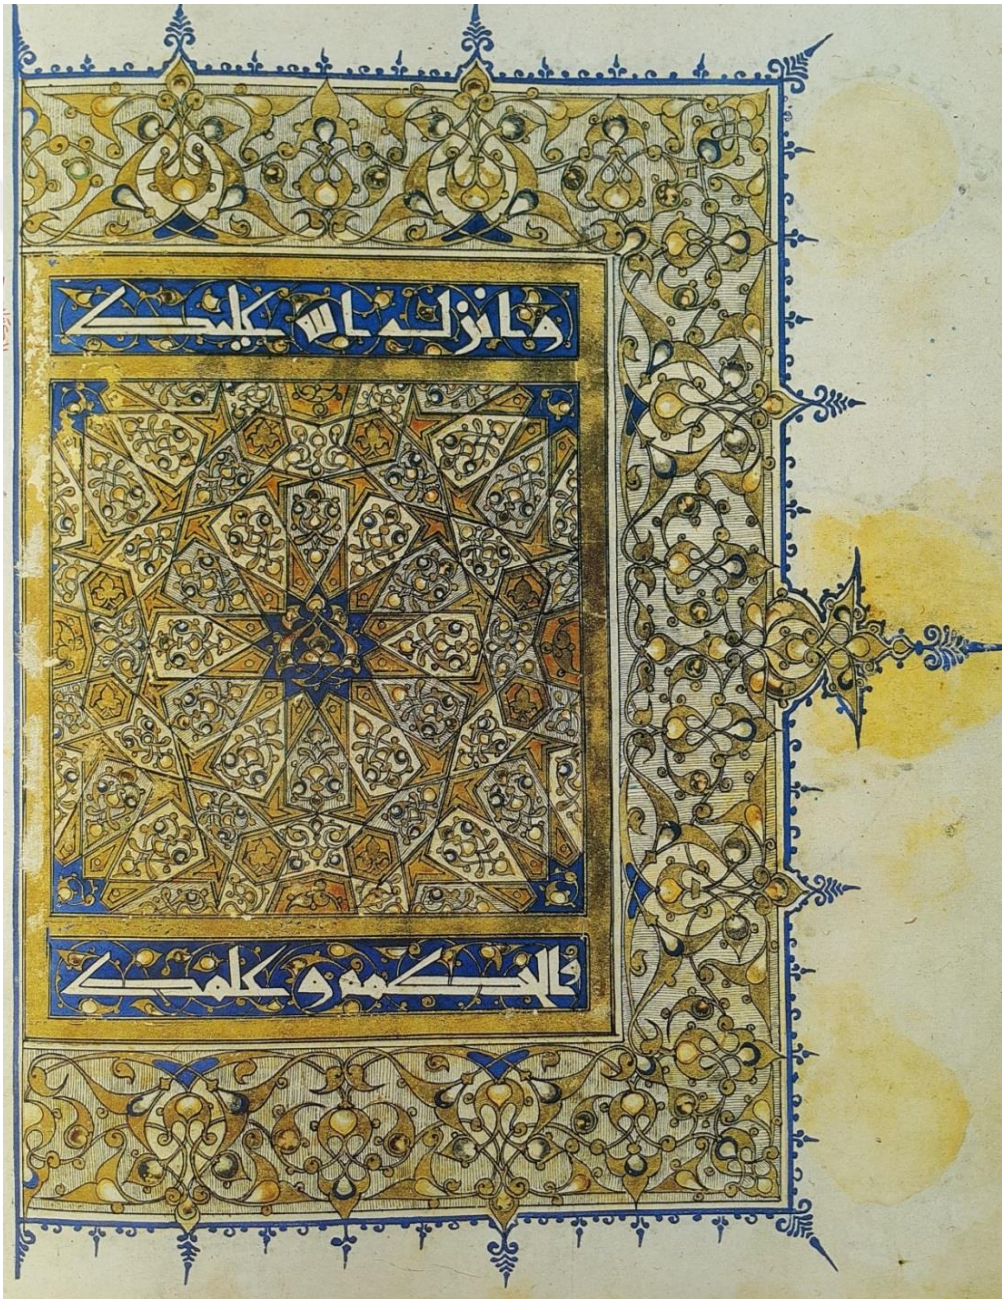 وانزل الله عليك
والحكمة وعلمك